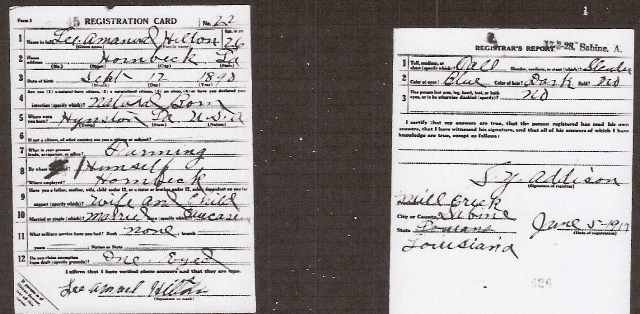 Form 1 35 REGISTRATION CARD No. 22
1 Name in full Lee Amanuel Hilton 26
(Given name) (Family name)
2 Home address Hornbeck La
(No.) (Street) (City) (State)
3 Date of birth Sept 12 1890
(Month) (Day) (Year)
4 Are you (1) a natural-born citizen, (2) a naturalized citizen, (3) an alien, (4) or have you declared your
intention (specify which)? Natural Born
5 Where were you born? La U.S.A
(Town) (State) (Nation)
6 If not a citizen, of what country are you a citizen or subject?
7 What is your present trade, occupation, or office? Farming
8 By whom employed? Himself
Where employed? Hornbeck
9 Have you a father, mother, wife, child under 12, or a sister or brother under 12, solely dependent on you for
support (specify which)? Wife and Child
10 Married or single (which)? Married Race (specify which)? Caucasian
11 What military service have you had? Rank None ; branch
years Nation or State
12 Do you claim exemption from draft (specify grounds)? One Eyed
I affirm that I have verified above answers and that they are true.
Lee Hilton
(Signature or mark)
REGISTRAR'S REPORT Sabine, A.
1 Tall, medium, or short (specify which)? Tall Slender, medium, or stout (which)? Slender
2 Color of eyes? Blue Color of hair? Dark Bald? No
3 Has person lost arm, leg, hand, foot, or both
eyes, or is he otherwise disabled (specify)? No
I certify that my answers are true, that the person registered has read his own
answers, that I have witnessed his signature, and that all of his answers of which I have
knowledge are true, except as follows:
Addison
(Signature of registrar)
Mill Creek
City or County Sabine
State Louisiana June 5-1917
(Date of registration)
Louisiana
626